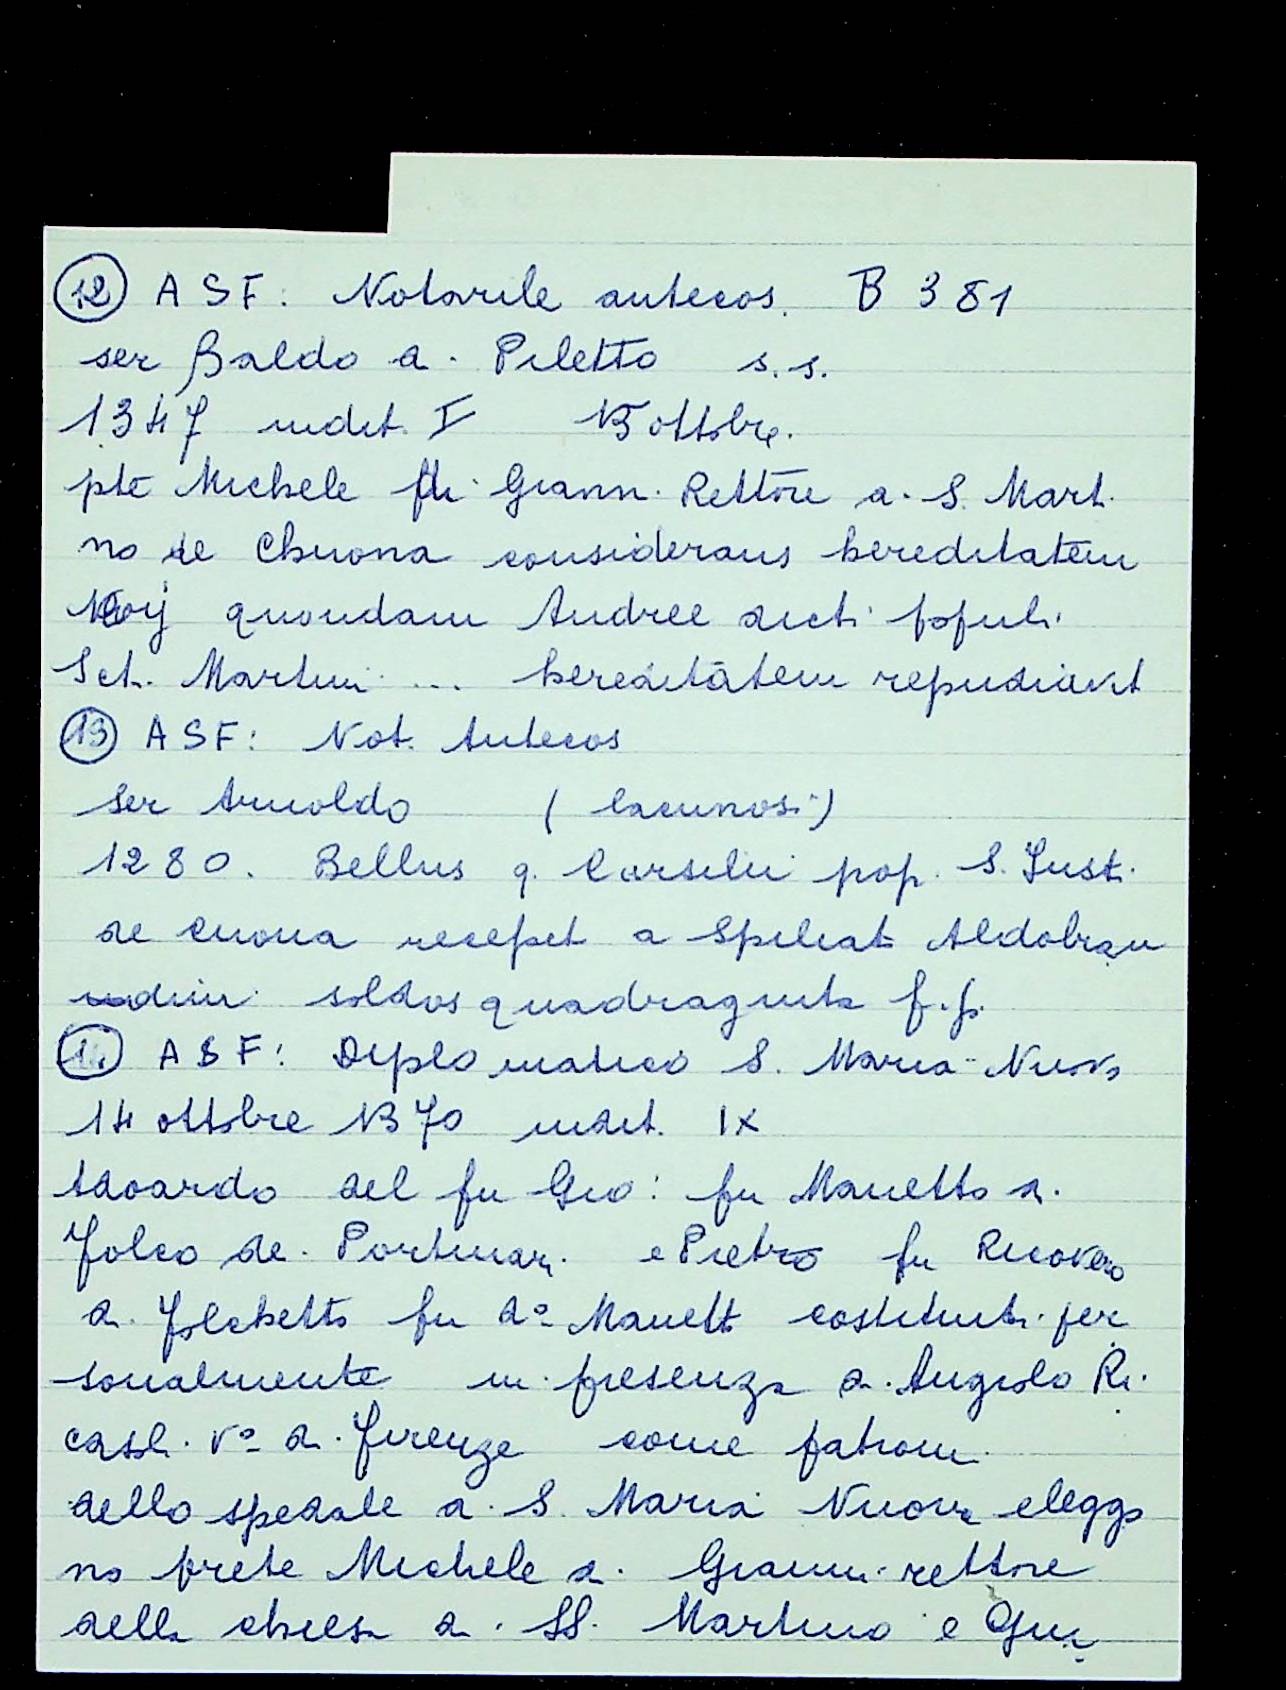 12 ASF: Notarile antecos. B 381
ser Baldo di Piletto s.s.
1347 indit. I 15 ottobre.
pte Michele fu Giann. Rettore di S. Marti
no de Chuona considerans hereditatem
quondam Andree dicti populi
Scti. Martini ... hereditatem repudiavit
13 ASF: Not. Antecos
ser Arnoldo (lacunosi)
1280. Bellus q. Carsilii pop. S. Justi
de Cuona recepit a Spiliati Aldobran
dini soldos quadraginta f.p.
ASF: Diplomatico S. Maria Nuova
14 ottobre 1370 indit. IX
Adoardo del fu Gio: fu Manetto di
Folco de. Portinari e Pietro fu Ricovero
di Folchetto fu do Manetti costituiti per
sonalmente in presenza di Angiolo Ri
casoli vo di Firenze come patroni
dello spedale di S. Maria Nuova eleggo
no prete Michele di Gianni rettore
della chiesa di SS. Martino e Giu